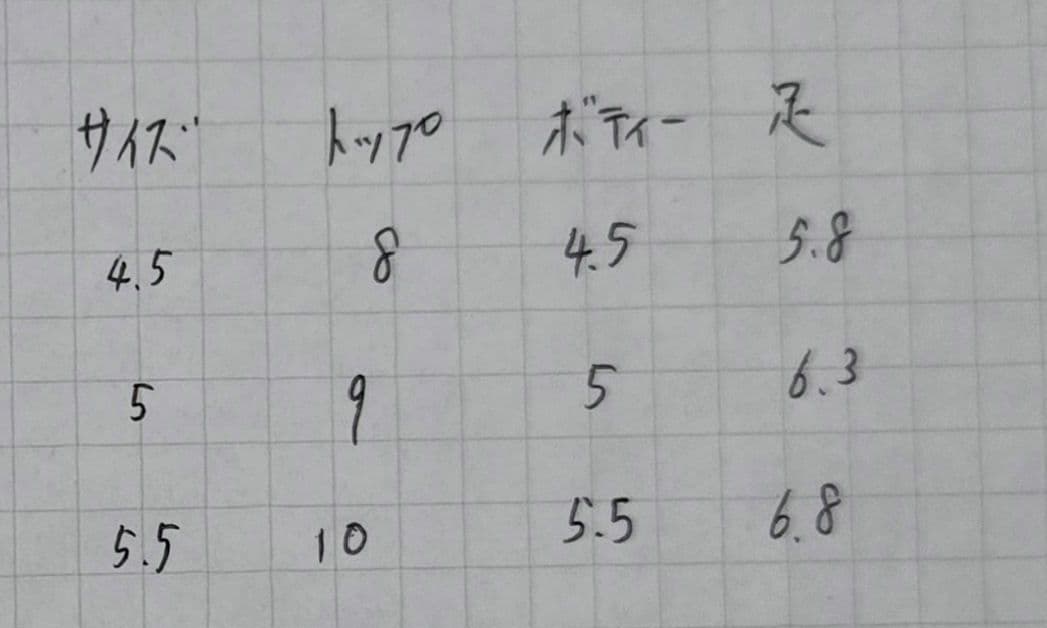 サイズ トップ ボディー 足
4.5 8 4.5 5.8
5 9 5 6.3
5.5 10 5.5 6.8